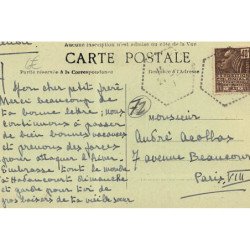 Aucune inscription n'est admise au côté de la Vue
CARTE POSTALE
Partie réservée à la Correspondance
l'Adresse
Mon cher petit frère
Merci beaucoup de
ta bonne lettre; nous
continuons à passer
de bien bonnes vacances
et prenons des forces
pour attaquer l'hiver.
Embrasse tout le monde
à dimanche
et garde pour toi de
gros baisers de ta vieille sœur
Monsieur
André
7 avenue Beaucour
Paris VIII